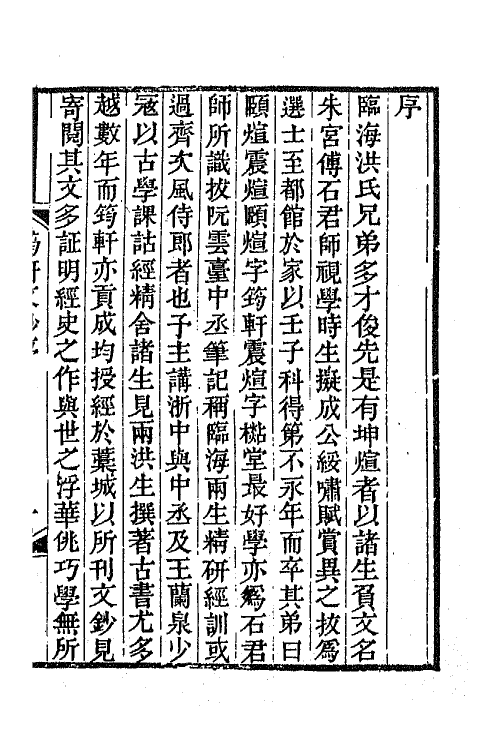 序
臨海洪氏兄弟多才俊先是有坤煊者以諸生負文名
朱宮傅石君師視學時生擬成公綏嘯賦賞異之拔爲
選士至都館於家以壬子科得第不永年而卒其弟曰
頤煊震煊頤煊字筠軒震煊字樾堂最好學亦爲石君
師所識拔阮雲臺中丞筆記稱臨海兩生精研經訓或
過齊次風侍郎者也子主講浙中與中丞及王蘭泉少
寇以古學課詁經精舍諸生見兩洪生撰著古書尤多
越數年而筠軒亦貢成均授經於藁城以所刊文鈔見
寄閱其文多証明經史之作與世之浮華佻巧學無所
筠軒文鈔序
一